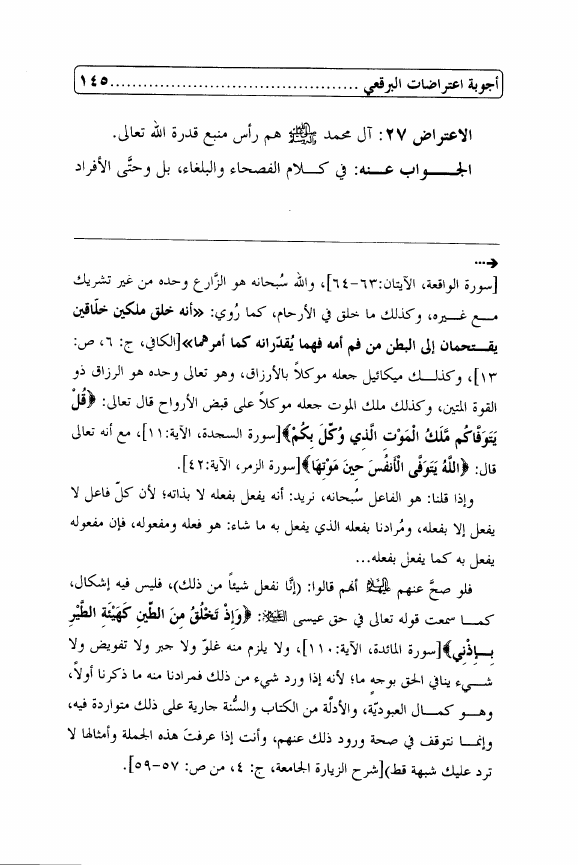 أجوبة اعتراضات البرقعي ............................................. ١٤٥
الاعتراض ٢٧: آل محمد ﷺ هم رأس منبع قدرة الله تعالى.
الجـــواب عـــنه: في كـــلام الفصحاء والبلغاء، بل وحتَّى الأفراد
←...
[سورة الواقعة، الآيتان:٦٣-٦٤]، والله سُبحانه هو الزَّارع وحده من غير تشريك
مـــع غـــيره، وكذلك ما خلق في الأرحام، كما رُوي: «أنه خلق ملكين خلّاقين
يقـــتحمان إلى البطن من فم أمه فهما يُقدّرانه كما أمرهما»[الكافي، ج: ٦، ص:
١٣]، وكذلـــك ميكائيل جعله موكلاً بالأرزاق، وهو تعالى وحده هو الرزاق ذو
القوة المتين، وكذلك ملك الموت جعله موكلاً على قبض الأرواح قال تعالى: ﴿قُلْ
يَتَوَفَّاكُم مَّلَكُ الْمَوْتِ الَّذِي وُكِّلَ بِكُمْ﴾[سورة السجدة، الآية:١١]، مع أنه تعالى
قال: ﴿اللَّهُ يَتَوَفَّى الْأَنفُسَ حِينَ مَوْتِهَا﴾[سورة الزمر، الآية:٤٢].
وإذا قلنا: هو الفاعل سُبحانه، نريد: أنه يفعل بفعله لا بذاته؛ لأن كلّ فاعل لا
يفعل إلا بفعله، ومُرادنا بفعله الذي يفعل به ما شاء: هو فعله ومفعوله، فإن مفعوله
يفعل به كما يفعل بفعله...
فلو صحَّ عنهم أنهم قالوا: (إنَّا نفعل شيئاً من ذلك)، فليس فيه إشكال،
كمـــا سمعت قوله تعالى في حق عيسى: ﴿وَإِذْ تَخْلُقُ مِنَ الطِّينِ كَهَيْئَةِ الطَّيْرِ
بِـــإِذْنِي﴾[سورة المائدة، الآية:١١٠]، ولا يلزم منه غلوّ ولا جبر ولا تفويض ولا
شـــيء ينافي الحق بوجهٍ ما؛ لأنه إذا ورد شيء من ذلك فمرادنا منه ما ذكرنا أولاً،
وهـــو كمـــال العبوديّة، والأدلّة من الكتاب والسُّنة جارية على ذلك متواردة فيه،
وإنمـــا نتوقف في صحة ورود ذلك عنهم، وأنت إذا عرفتَ هذه الجملة وأمثالها لا
ترد عليك شبهة قط)[شرح الزيارة الجامعة، ج: ٤، من ص: ٥٧-٥٩].